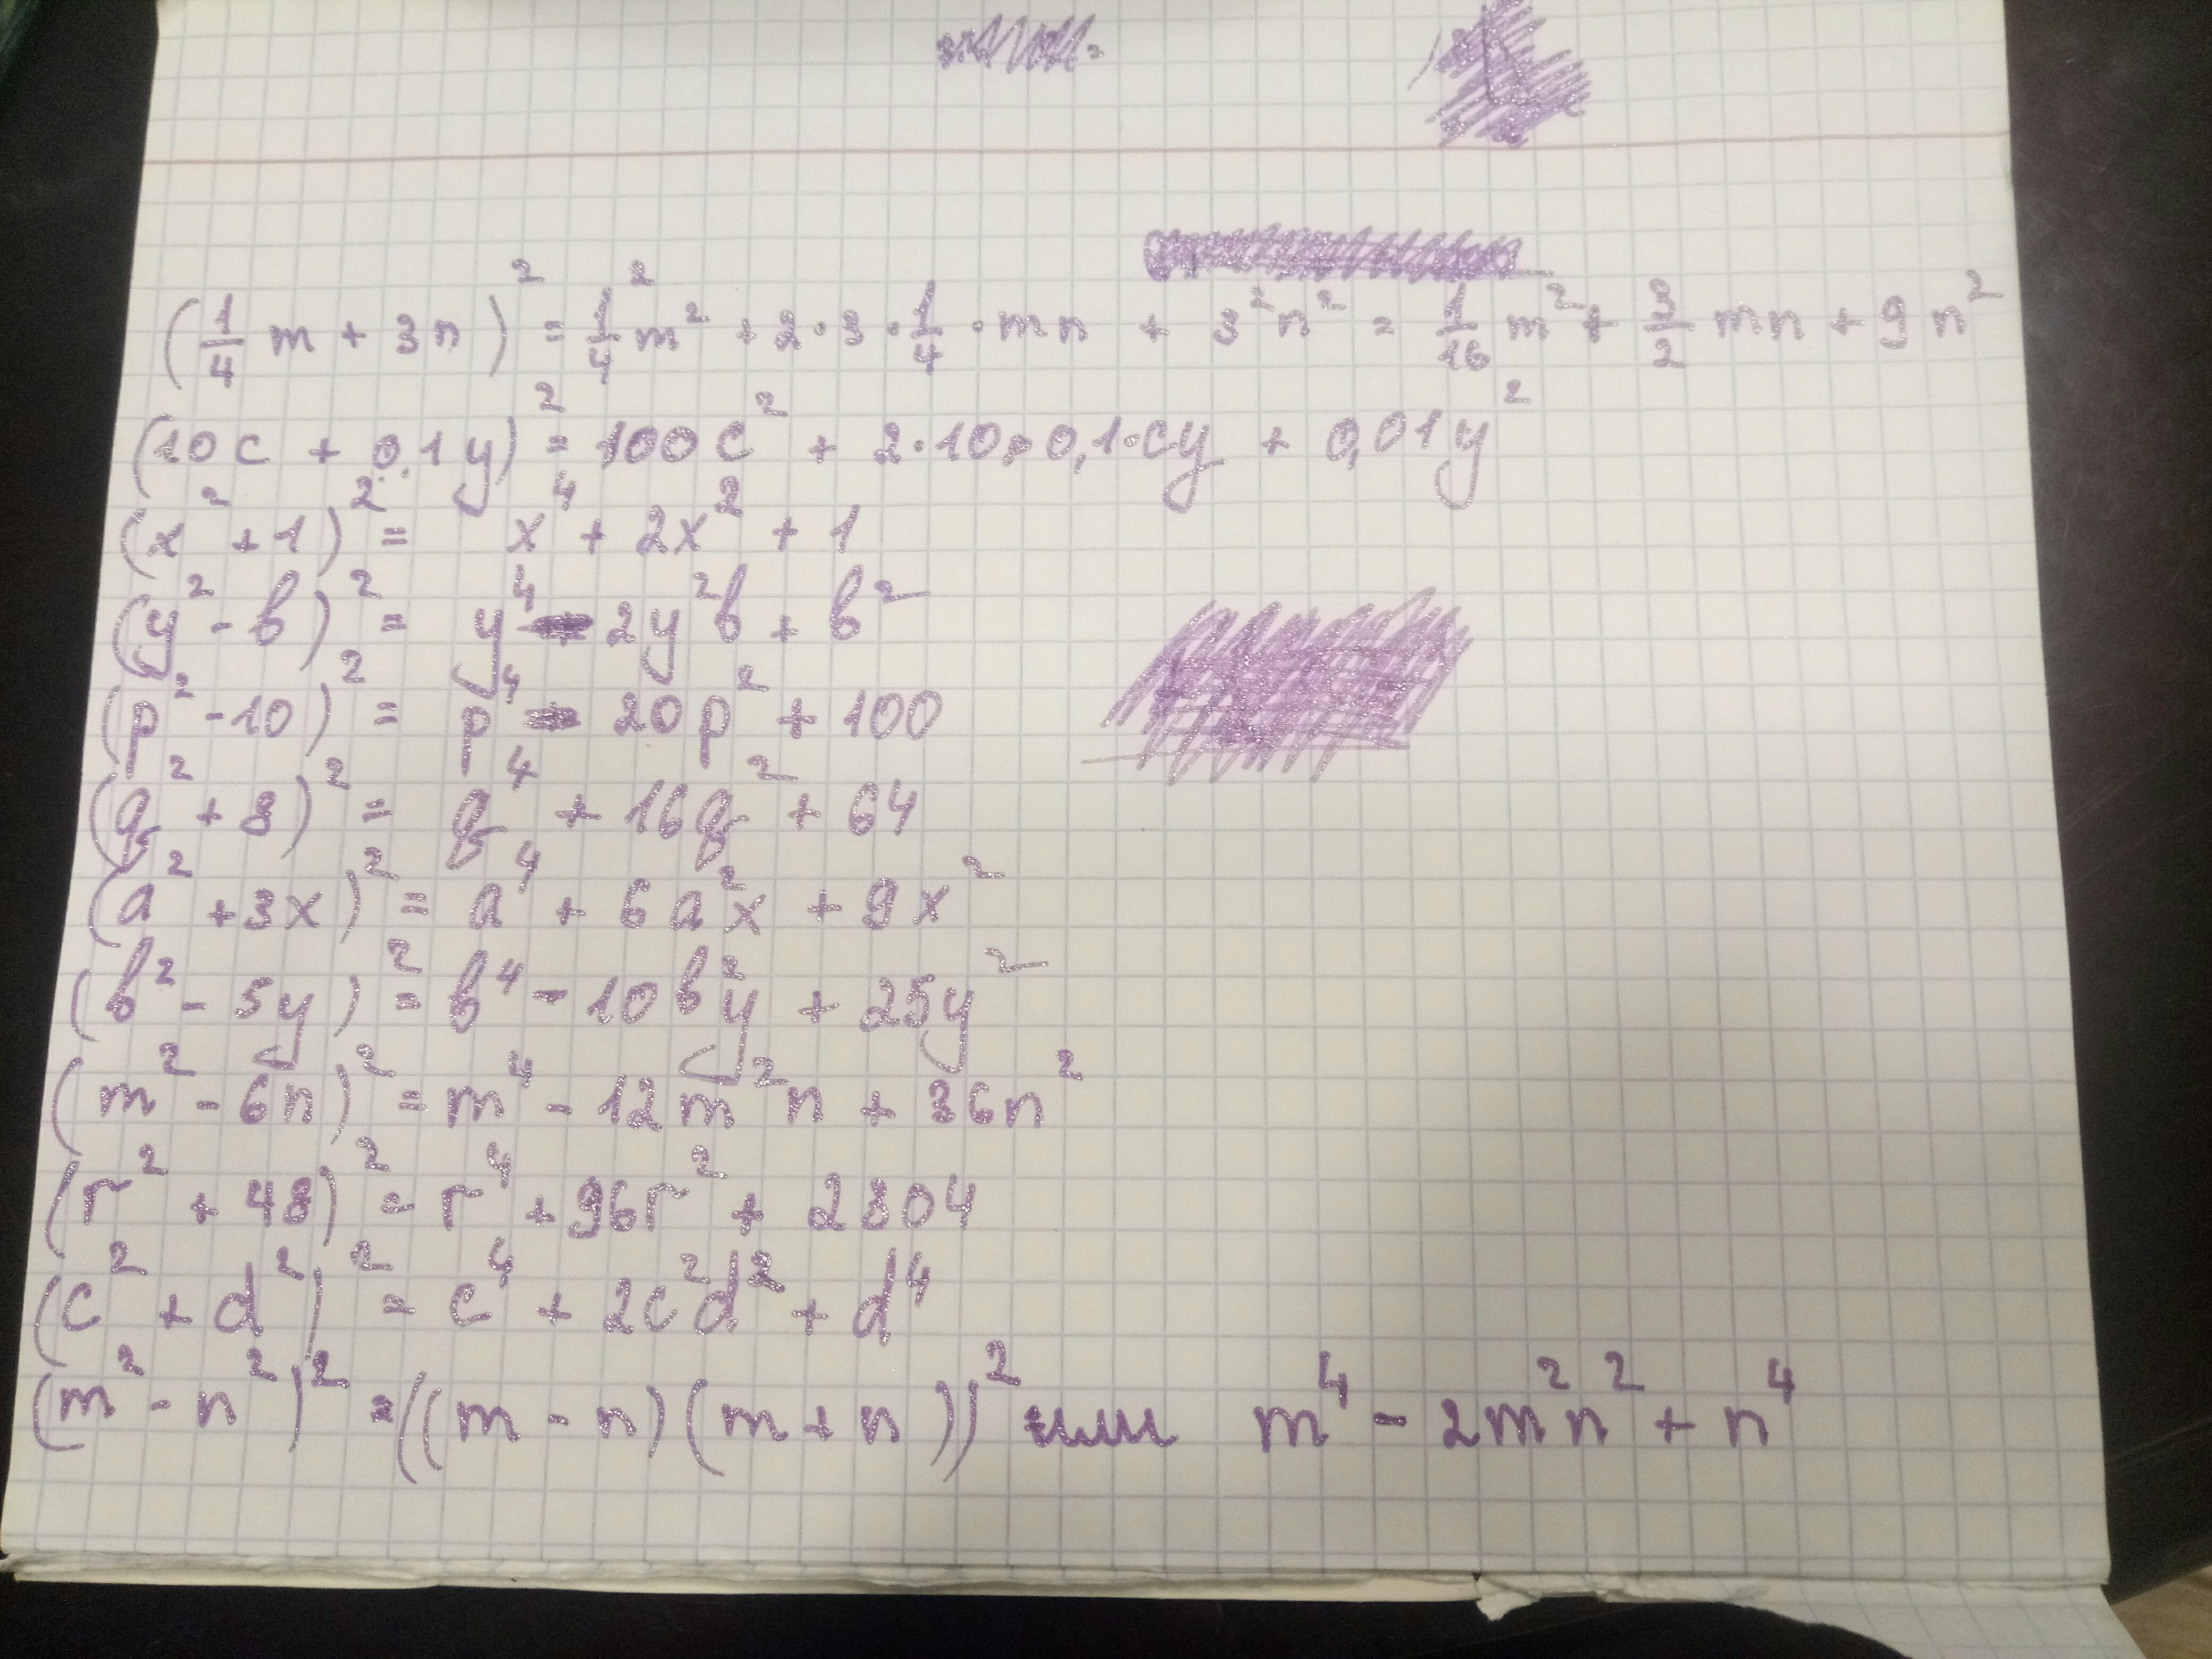 (1/4 m + 3n)² = 1/4² m² + 2·3·1/4·mn + 3²n² = 1/16 m² + 3/2 mn + 9n²
(10c + 0,1y)² = 100c² + 2·10·0,1·cy + 0,01y²
(x² + 1)² = x⁴ + 2x² + 1
(y² - b)² = y⁴ - 2y²b + b²
(p² - 10)² = p⁴ - 20p² + 100
(q² + 8)² = q⁴ + 16q² + 64
(a² + 3x)² = a⁴ + 6a²x + 9x²
(b² - 5y)² = b⁴ - 10b²y + 25y²
(m² - 6n)² = m⁴ - 12m²n + 36n²
(r² + 48)² = r⁴ + 96r² + 2304
(c² + d²)² = c⁴ + 2c²d² + d⁴
(m² - n²)² = ((m - n)(m + n))² или m⁴ - 2m²n² + n⁴